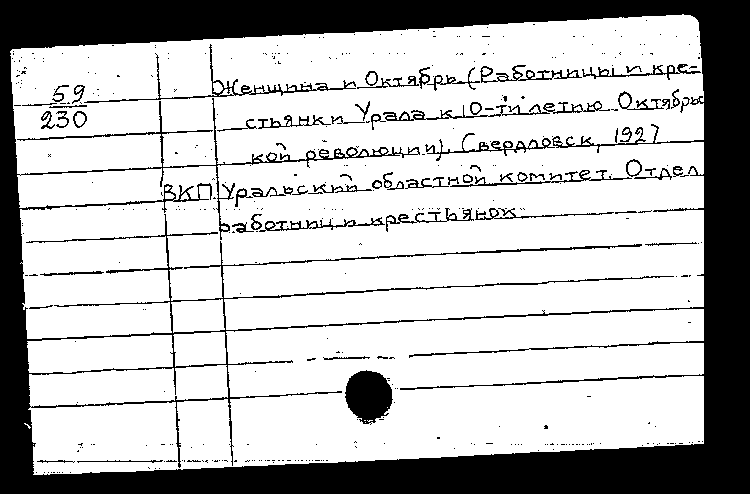 59
230
Женщина и Октябрь. (Работницы и кре-
стьянки Урала к 10-ти летию Октябрь
кой революции). Свердловск, 1927
ВКП Уральский областной комитет. Отдел
работниц и крестьянок.